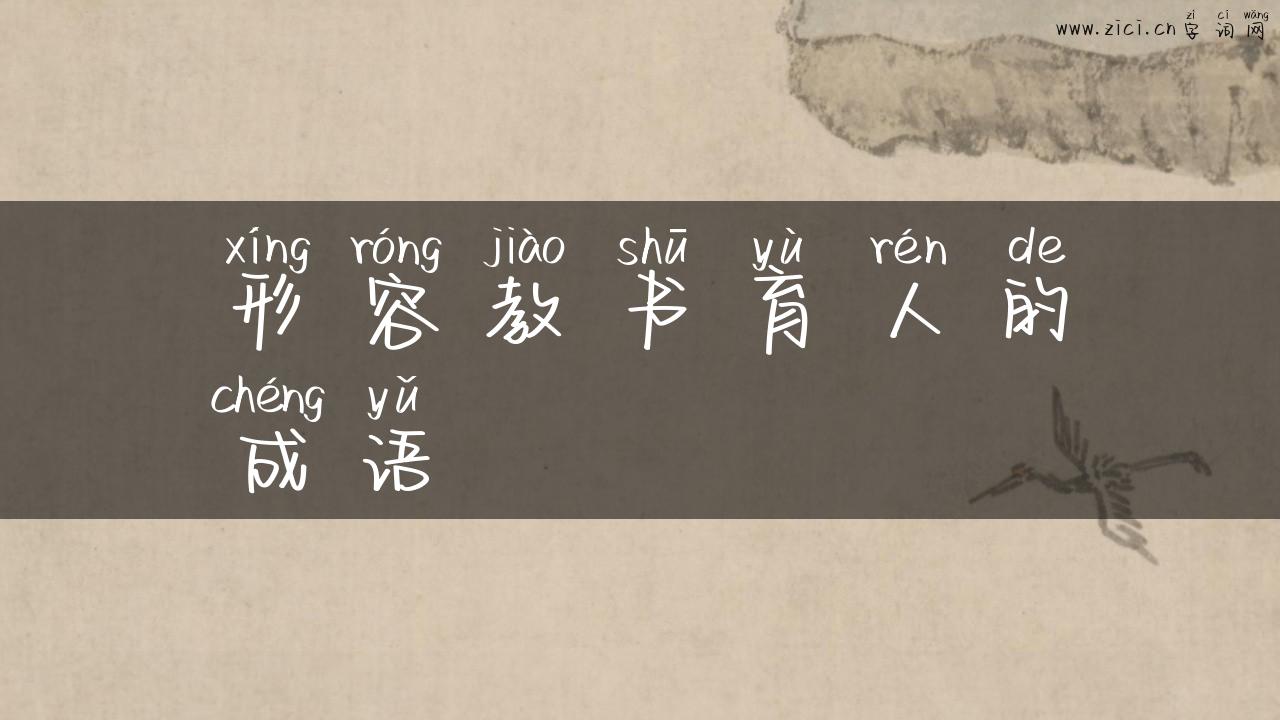 zì cí wǎng
www.zici.cn 字词网
xíng róng jiào shū yù rén de
形容教书育人的
chéng yǔ
成语